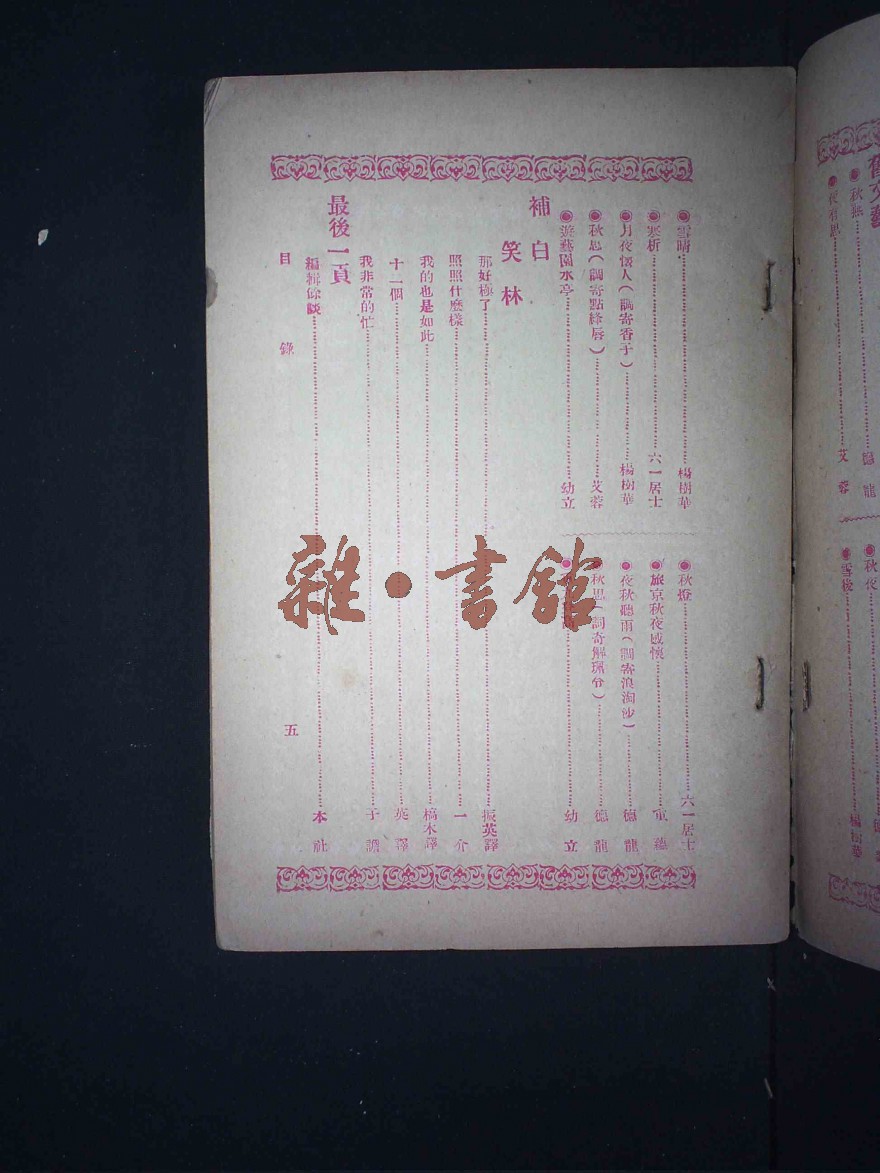 舊文藝
◉秋眠
德龍
◉夜有思
艾蓉
◉秋夜
◉雪後
楊樹華
◉雪晴 楊樹華
◉寒析 六一居士
◉月夜懷人（調寄香子） 楊樹華
◉秋思（調寄點絳唇） 艾蓉
◉遊藝園水亭 幼立
◉秋燈 六一居士
◉旅京秋夜感懷
◉夜秋聽雨（調寄浪淘沙） 德龍
◉秋思（調寄解珮令） 德龍
幼立
補白
笑林
那好極了 振英譯
照照什麼樣 一介
我的也是如此 槁木譯
十二個 英譯
我非常的忙 子
最後一頁
編輯餘談 本社
目錄
五
雜·書館